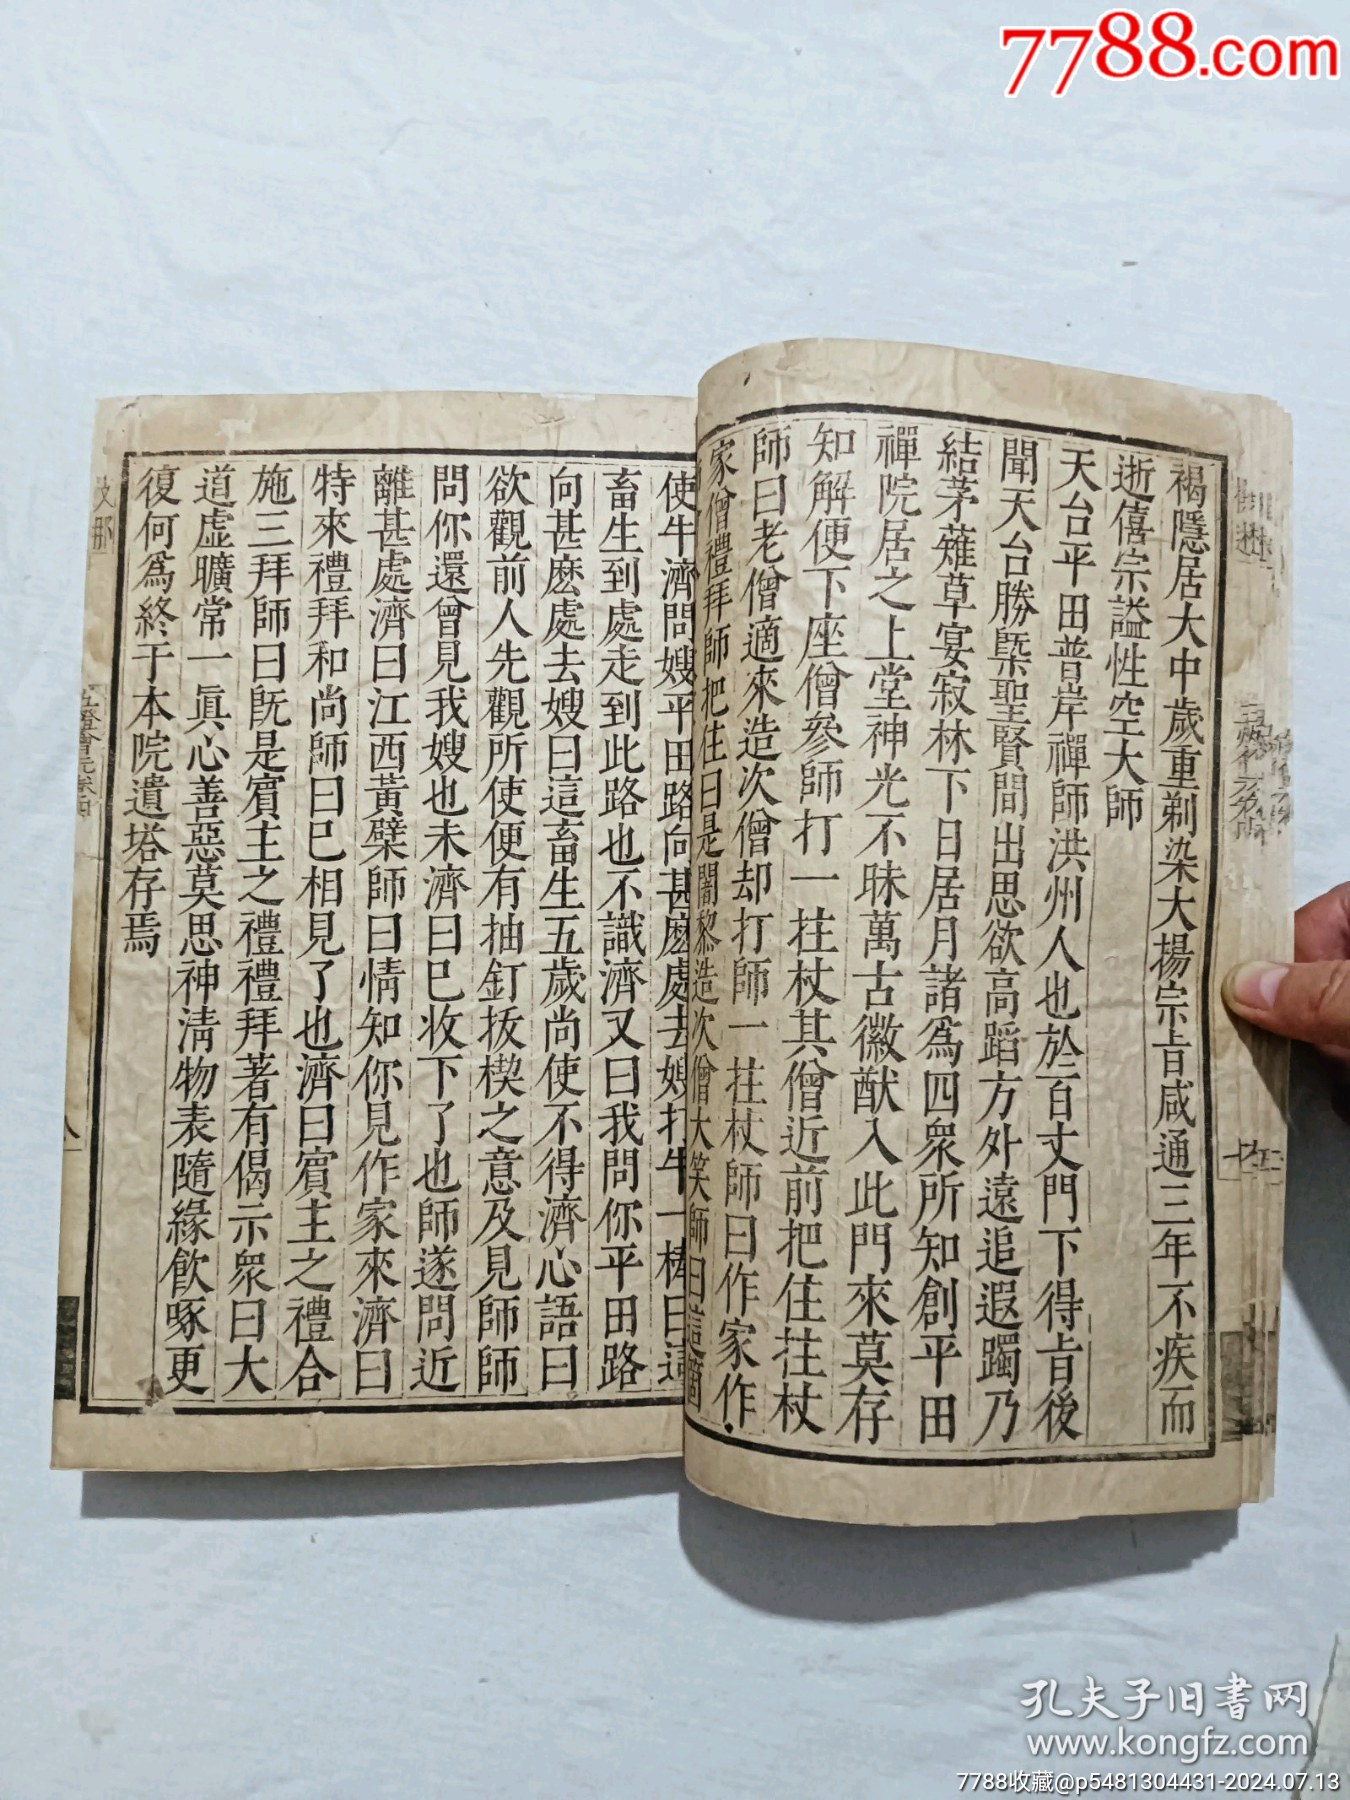 7788.com
褐隱居大中歲重剃染大揚宗旨咸通三年不疾而
逝僖宗諡性空大師
天台平田普岸禪師洪州人也於百丈門下得旨後
聞天台勝槩聖賢間出思欲高蹈方外遠追遐躅乃
結茅薙草宴寂林下日居月諸爲四衆所知創平田
禪院居之上堂神光不昧萬古徽猷入此門來莫存
知解便下座僧參師打一拄杖其僧近前把住拄杖
師曰老僧適來造次僧却打師一拄杖師曰作家作
家僧禮拜師把住曰是闍黎造次僧大笑師曰這箇
使牛濟問嫂平田路向甚麽處去嫂打牛一棒曰這
畜生到處走到此路也不識濟又曰我問你平田路
向甚麽處去嫂曰這畜生五歲尚使不得濟心語曰
欲觀前人先觀所使便有抽釘拔楔之意及見師師
問你還曾見我嫂也未濟曰已收下了也師遂問近
離甚處濟曰江西黃檗師曰情知你見作家來濟曰
特來禮拜和尚師曰已相見了也濟曰賓主之禮合
施三拜師曰旣是賓主之禮禮拜著有偈示衆曰大
道虛曠常一眞心善惡莫思神清物表隨緣飮啄更
復何爲終于本院遺塔存焉
孔夫子旧書网
www.kongfz.com
7788收藏@p5481304431-2024.07.13